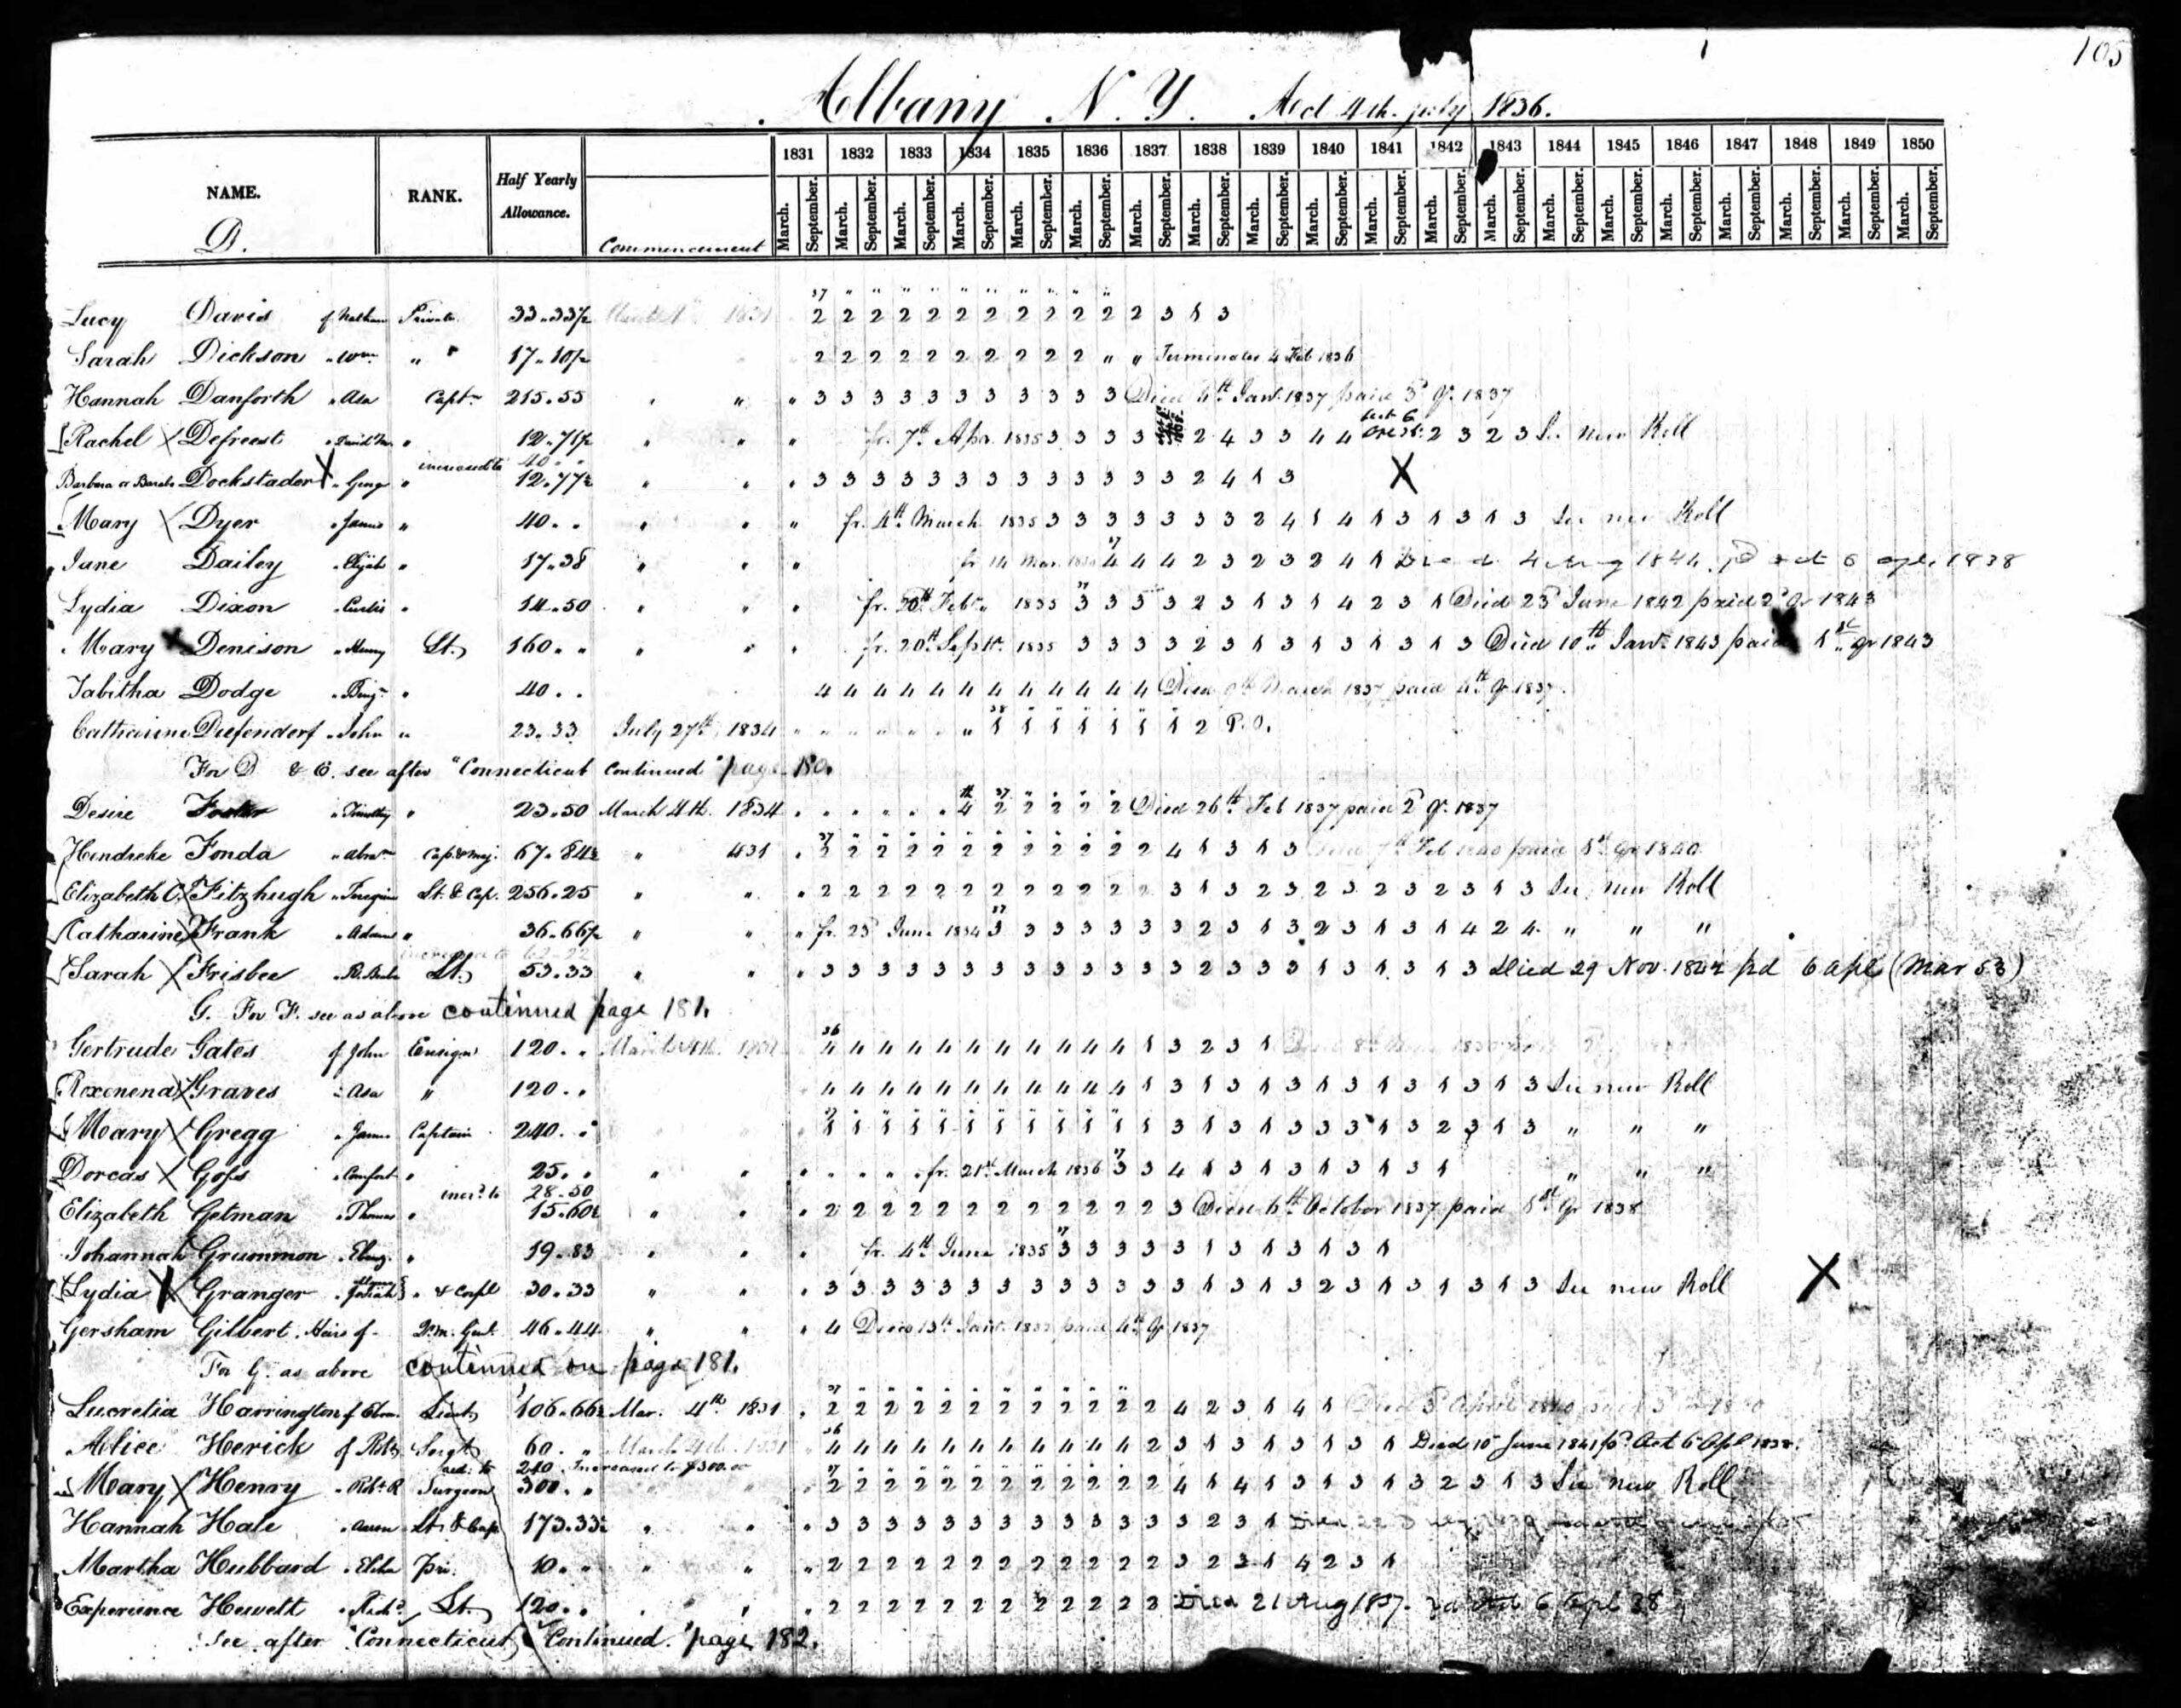 105
Albany N. Y. Act 4th. july 1836.
NAME. RANK. Half Yearly Allowance. Commencement 1831 1832 1833 1834 1835 1836 1837 1838 1839 1840 1841 1842 1843 1844 1845 1846 1847 1848 1849 1850
March. September. March. September. March. September. March. September. March. September. March. September. March. September. March. September. March. September. March. September. March. September. March. September. March. September. March. September. March. September. March. September. March. September. March. September. March. September. March. September.
D.
37 " " " " " " " " " "
Lucy Davis of Nathan Private 33.33½ 2 2 2 2 2 2 2 2 2 2 2 2 3 1 3
Sarah Dickson " Wm. " " 17.10½ 2 2 2 2 2 2 2 2 2 2 " " Terminates 4 Feb 1836
Hannah Danforth " Asa Captn 215.55 " " 3 3 3 3 3 3 3 3 3 3 3 Died 4th Jany. 1837 paid 3d qr. 1837
Rachel Defreest " 12.71½ " " " fr. 7th Apr. 1835 3 3 3 3 2 4 3 3 4 4 2 3 2 3 See new Roll
increased to 40 " "
Barbara or Barbe Dockstader " Georg " 12.77½ " " " 3 3 3 3 3 3 3 3 3 3 3 3 3 2 4 1 3 X
Mary Dyer " James " 40 . . " " " fr. 4th March 1835 3 3 3 3 3 3 3 2 4 1 4 1 3 1 3 1 3 See new Roll
Jane Dailey " Elijah " 17.38 " " " fr 14 Mar. 4 4 4 2 3 2 3 2 4 1 1838
Lydia Dixon " Curtis " 14.50 " " " fr. 20th Feby. 1835 3 3 3 3 2 3 1 3 1 4 2 3 1 Died 23d June 1842 paid 2d Qr 1843
Mary Denison " Henry Lt. 160 " " " " " fr. 20th Septr. 1835 3 3 3 3 2 3 1 3 1 3 1 3 1 3 Died 10th Jany. 1843 paid 1st qr 1843
Tabitha Dodge " Benjn. " 40 . . 4 4 4 4 4 4 4 4 4 4 4 4 Died 9th March 1837 paid 4th qr. 1837.
Catharine Diefendorf " John " 23.33 July 27th, 1834 38 1 1 1 1 1 1 1 2 P.O.
For D & E. see after "Connecticut continued" page 180.
Desire Foster " Timothy " 23.50 March 4th. 1834 4 2 2 2 2 2 Died 26th Feb 1837 paid 2d qr. 1837
Hendreke Fonda " Abrm. Cap. & Maj. 67.84½ " 1831 2 2 2 2 2 2 2 2 2 2 2 2 4 1 3 1 3 7th Feb 1840 paid 1st qr 1840
Elizabeth C. Fitzhugh Lt. & Cap. 256.25 " " " 2 2 2 2 2 2 2 2 2 2 2 2 3 1 3 2 3 2 3 2 3 2 3 1 3 See new Roll
Catharine Frank " Adam " 36.66½ " " " fr. 23d June 1834 3 3 3 3 3 3 3 2 3 1 3 2 3 1 3 1 4 2 4 " " "
Sarah Frisbee Lt. 53.33 " " " 3 3 3 3 3 3 3 3 3 3 3 3 3 2 3 3 3 1 3 1 3 1 3 Died 29 Nov. 1842 pd 6 apl (Mar 53)
G. For F. see as above continued page 181.
Gertrude Gates of John Ensign 120 . . 36 4 4 4 4 4 4 4 4 4 4 4 1 3 2 3 1
Roxenena Graves " Asa " 120 . . 4 4 4 4 4 4 4 4 4 4 4 1 3 1 3 1 3 1 3 1 3 1 3 1 3 See new Roll
Mary Gregg " James Captain 240 . . 1 1 1 1 1 1 1 1 1 1 1 1 3 1 3 1 3 3 3 1 3 2 3 1 3 " " "
Dorcas Goss " Comfort " 25 . . " " fr. 21st March 1836 3 3 4 1 3 1 3 1 3 1 3 1 " " "
incrd. to 28.50
Elizabeth Getman " Thomas " 15.60½ " " " 2 2 2 2 2 2 2 2 2 2 2 2 3 Died 6th October 1837 paid 1st Qr 1838
Johannah Grummon " " 19.83 " " " fr. 4th June 1835 3 3 3 3 3 1 3 1 3 1 3 1
Lydia Granger " Josiah " & Corpl 30.33 " " " 3 3 3 3 3 3 3 3 3 3 3 3 3 1 3 1 3 2 3 1 3 1 3 1 3 See new Roll X
Gersham Gilbert. Heirs of " Qr. m. 46.44 " " " 4 Died 13th Jany. paid 4th qr 1837
For G. as above continued on page 181.
Lucretia Harrington Lieut 106.66½ Mar. 4th 1831 37 2 2 2 2 2 2 2 2 2 2 2 2 4 2 3 1 4 1 April
Alice Herick of Robt Sergt 60 . " March 4th. 1831 36 4 4 4 4 4 4 4 4 4 4 4 2 3 1 3 1 3 1 3 1 Died 10 June 1841 pd. Oct 6 Apl 1838.
red. to 240. Increased to $300.00
Mary Henry " Robt R Surgeon 300 . " 2 2 2 2 2 2 2 2 2 2 2 2 4 1 4 1 3 1 3 1 3 2 3 1 3 See new Roll
Hannah Hale " Aaron Lt. & Cap 173.33½ " " " 3 3 3 3 3 3 3 3 3 3 3 3 3 2 3 1
Martha Hubbard " Elisha Pri. 10 . " " " " 2 2 2 2 2 2 2 2 2 2 2 2 3 2 3 1 4 2 3 1
Experience Hewett " Richd. Lt. 120 . . 2 2 2 2 2 2 2 2 2 2 2 2 Died 21 Aug 1837. 6 Apl 38
See after "Connecticut Continued." page 182.